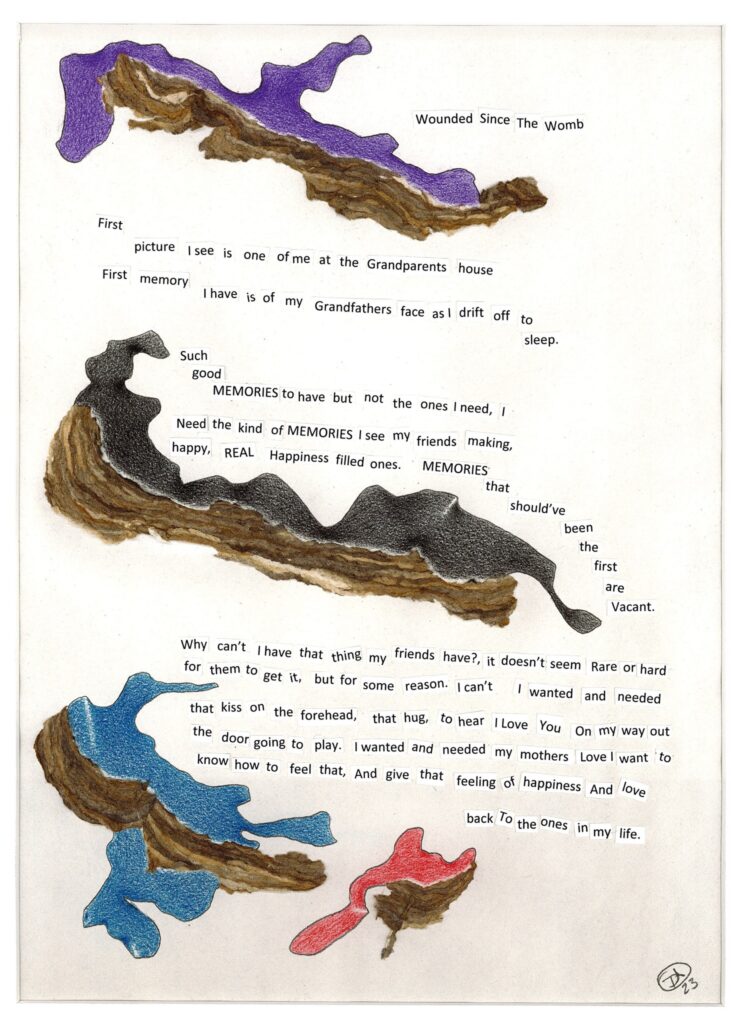 Wounded Since The Womb
First
picture I see is one of me at the Grandparents house
First memory
I have is of my Grandfathers face as I drift off to
sleep.
Such
good
MEMORIES to have but not the ones I need, I
Need the kind of MEMORIES I see my friends making,
happy, REAL Happiness filled ones. MEMORIES
that
should've
been
the
first
are
Vacant.
Why can't I have that thing my friends have?, it doesn't seem Rare or hard
for them to get it, but for some reason. I can't I wanted and needed
that kiss on the forehead, that hug, to hear I Love You On my way out
the door going to play. I wanted and needed my mothers Love I want to
know how to feel that, And give that feeling of happiness And love
back To the ones in my life.
23